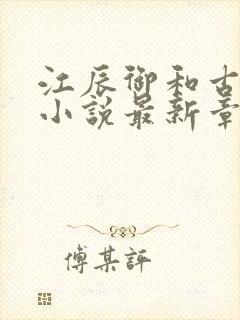 江辰御和古
小説最新章
傅某評